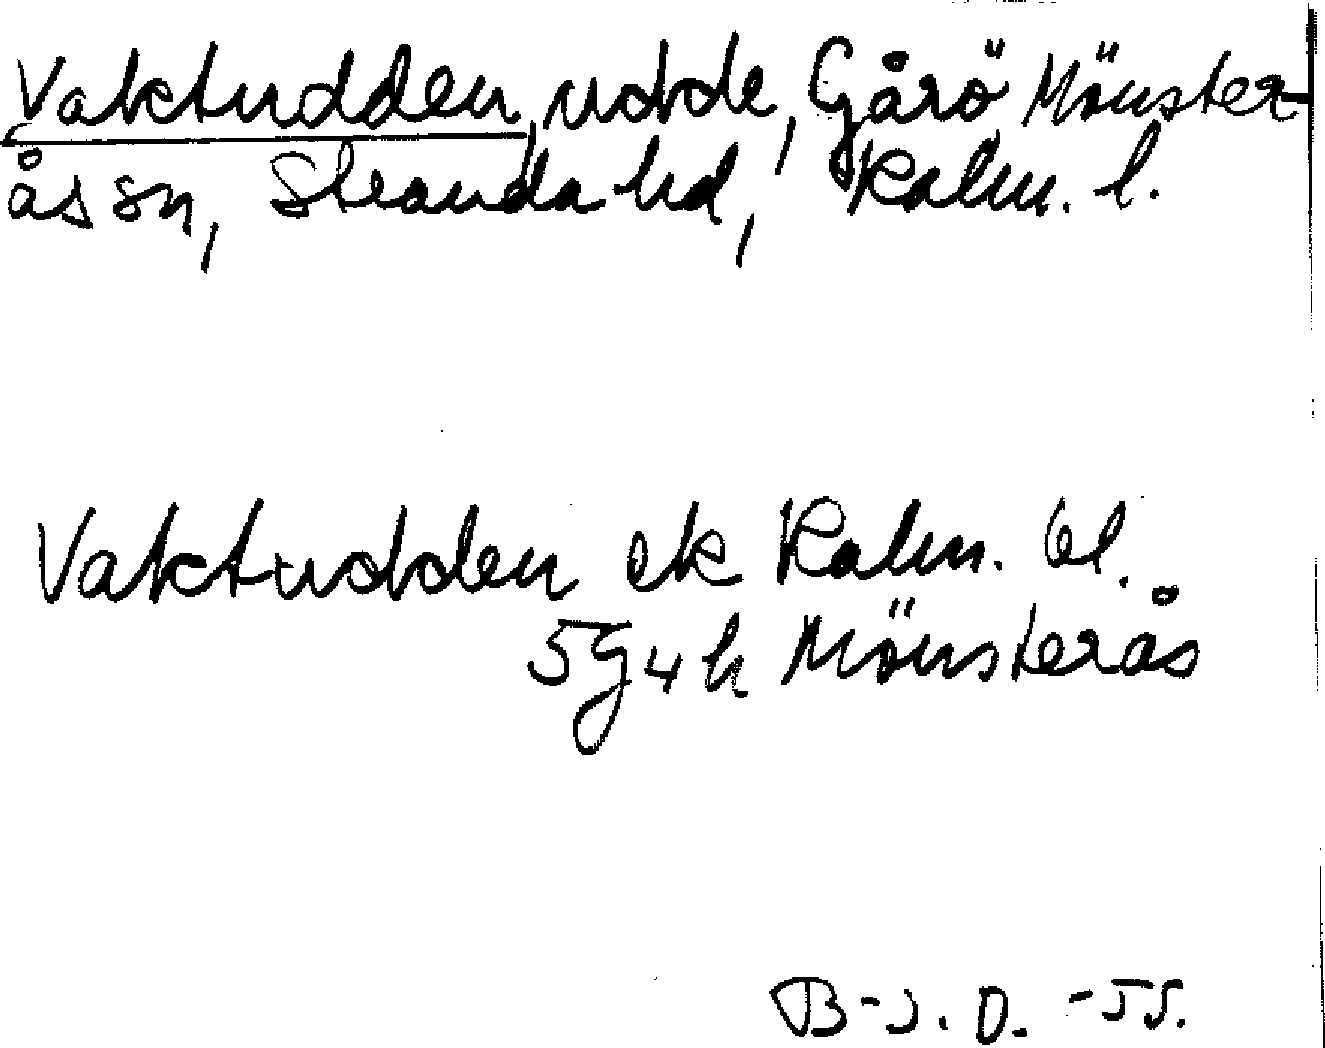 Vaktudden, udde, Gårö Mönster-
ås sn, Stranda hd, Kalm. l.
Vaktudden ek Kalm. bl.
5g4h Mönsterås
B-J. D. -55.